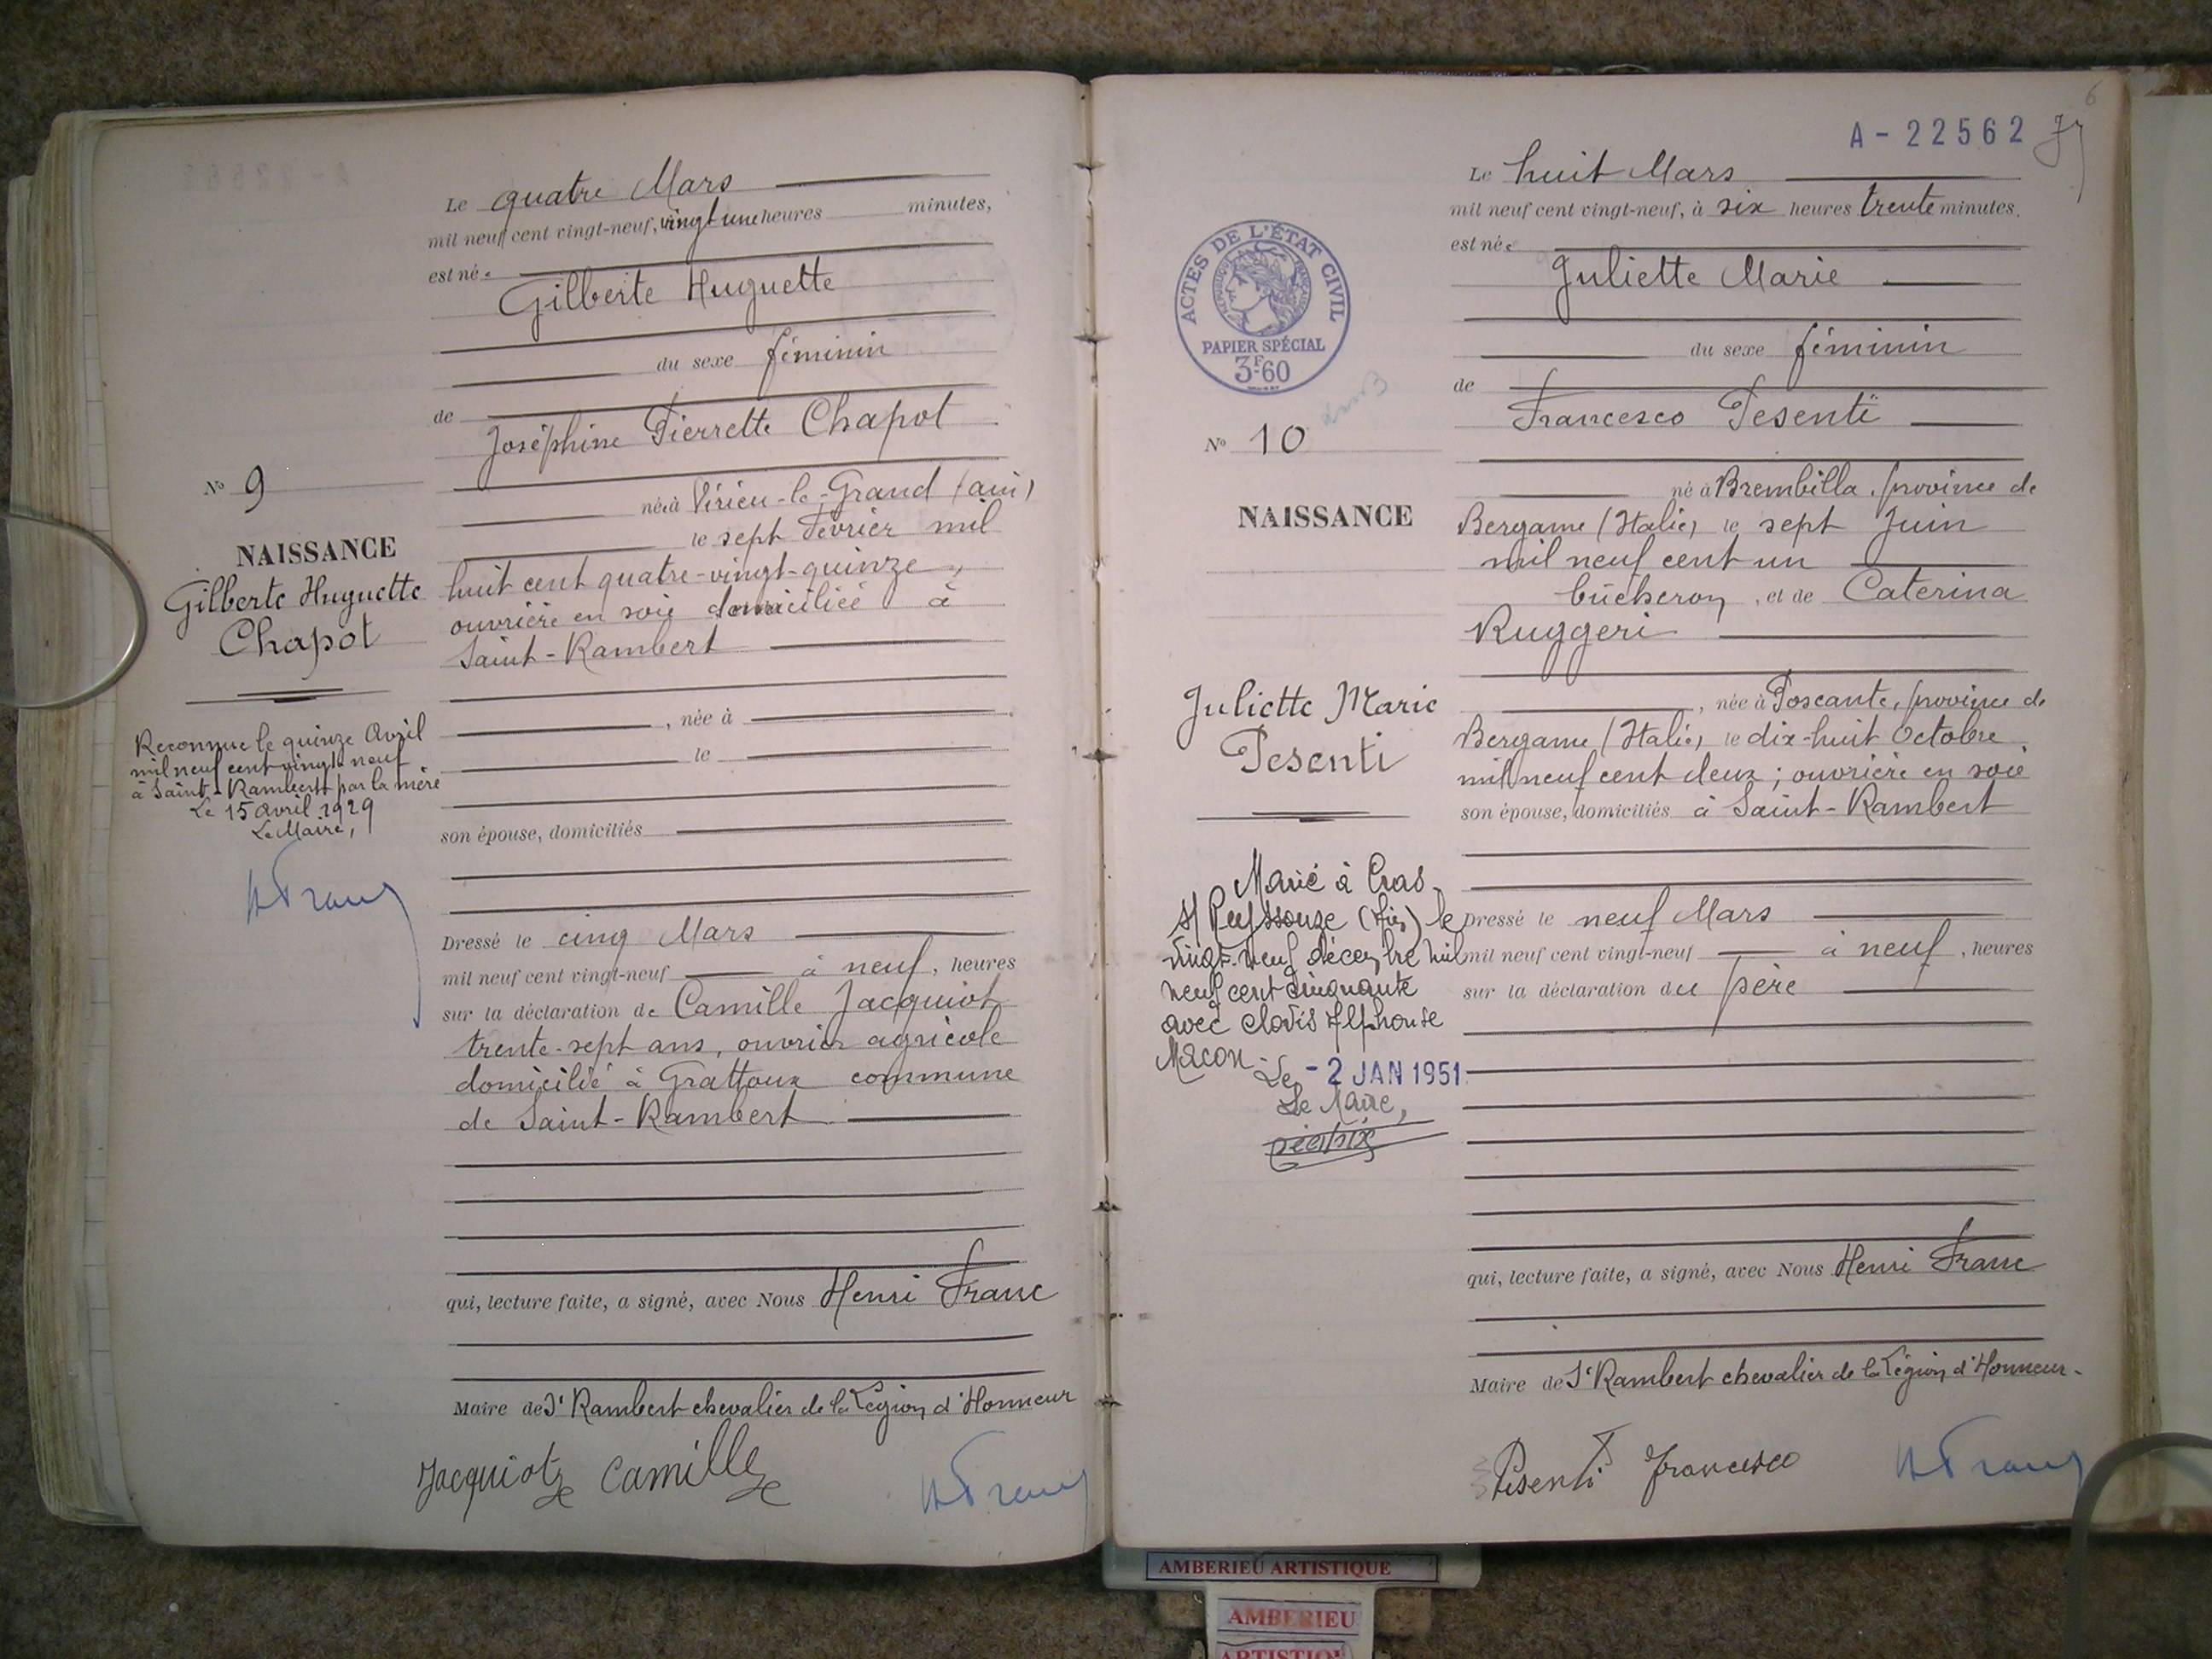 Le quatre Mars
mil neuf cent vingt-neuf, vingt une heures minutes,
est née
Gilberte Huguette
du sexe féminin
de
Joséphine Pierrette Chapot
née à Virieu-le-Grand (ain)
le sept Février mil
huit cent quatre-vingt-quinze,
ouvrière en soie domiciliée à
Saint-Rambert
, née à
le
son épouse, domiciliés
Dressé le cinq Mars
mil neuf cent vingt-neuf à neuf, heures
sur la déclaration de Camille Jacquiot
trente-sept ans, ouvrier agricole
domicilié à Grattoux commune
de Saint-Rambert
qui, lecture faite, a signé, avec Nous Henri Franc
Maire de St Rambert chevalier de la Légion d'Honneur
Jacquiot Camille
H Franc
N° 9
NAISSANCE
Gilberte Huguette
Chapot
Reconnue le quinze Avril
mil neuf cent vingt neuf
à Saint-Rambert par la mère
Le 15 avril 1929
Le Maire,
H Franc
A-22562
6
Le huit Mars
mil neuf cent vingt-neuf, à six heures trente minutes.
est née
Juliette Marie
du sexe féminin
de
Francesco Pesenti
né à Brembilla, province de
Bergame (Italie) le sept Juin
mil neuf cent un
bûcheron, et de Caterina
Ruggeri
, née à Poscante, province de
Bergame (Italie) le dix-huit Octobre
mil neuf cent deux ; ouvrière en soie
son épouse, domiciliés à Saint-Rambert
Dressé le neuf Mars
mil neuf cent vingt-neuf à neuf, heures
sur la déclaration du père
qui, lecture faite, a signé, avec Nous Henri Franc
Maire de St Rambert chevalier de la Légion d'Honneur.
Pesenti Francesco
H Franc
ACTES DE L'ÉTAT CIVIL
RÉPUBLIQUE FRANÇAISE
PAPIER SPÉCIAL
3F.60
N° 10
NAISSANCE
Juliette Marie
Pesenti
Marié à Cras
s/ Reyssouze (Ain) le
vingt-neuf décembre mil
neuf cent cinquante
avec Clovis Alphonse
Macon
Le - 2 JAN 1951
Le Maire,
AMBERIEU ARTISTIQUE
AMBERIEU
ARTISTIQU